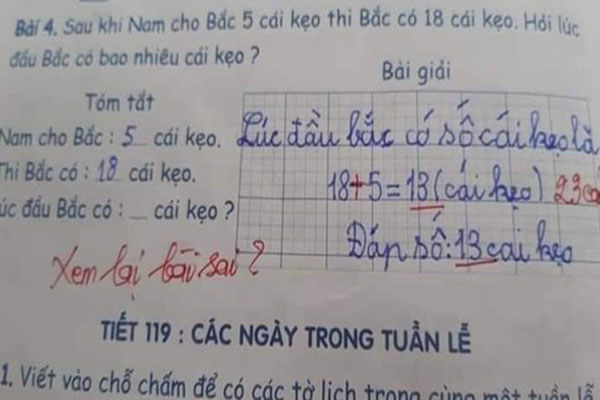 Bài 4. Sau khi Nam cho Bắc 5 cái kẹo thì Bắc có 18 cái kẹo. Hỏi lúc
đầu Bắc có bao nhiêu cái kẹo ?
Bài giải
Tóm tắt
Nam cho Bắc : 5 cái kẹo.
Lúc đầu bắc có số cái kẹo là
Thì Bắc có : 18 cái kẹo.
18+5=13(cái kẹo) 23cá
úc đầu Bắc có : __ cái kẹo ?
Đáp số:13 cái kẹo
Xem lại bài sai ?
TIẾT 119 : CÁC NGÀY TRONG TUẦN LỄ
1. Viết vào chỗ chấm để có các tờ lịch trong cùng một tuần lễ